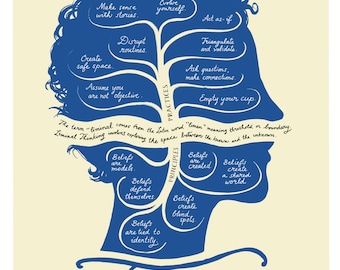 Make sense
with stories.
Evolve
yourself.
Act as-if
Disrupt
routines.
Triangulate
and validate
Create
safe space.
Ask questions,
make connections.
Assume you
are not objective.
Empty your cup
PRACTICES
The term liminal comes from the Latin word "limen" meaning threshold or boundary.
Liminal Thinking involves exploring the space between the known and the unknown.
PRINCIPLES
Beliefs
are models.
Beliefs
are created.
Beliefs
create
a shared
world.
Beliefs
defend
themselves.
Beliefs
create
blind
spots.
Beliefs
are tied to
identity.